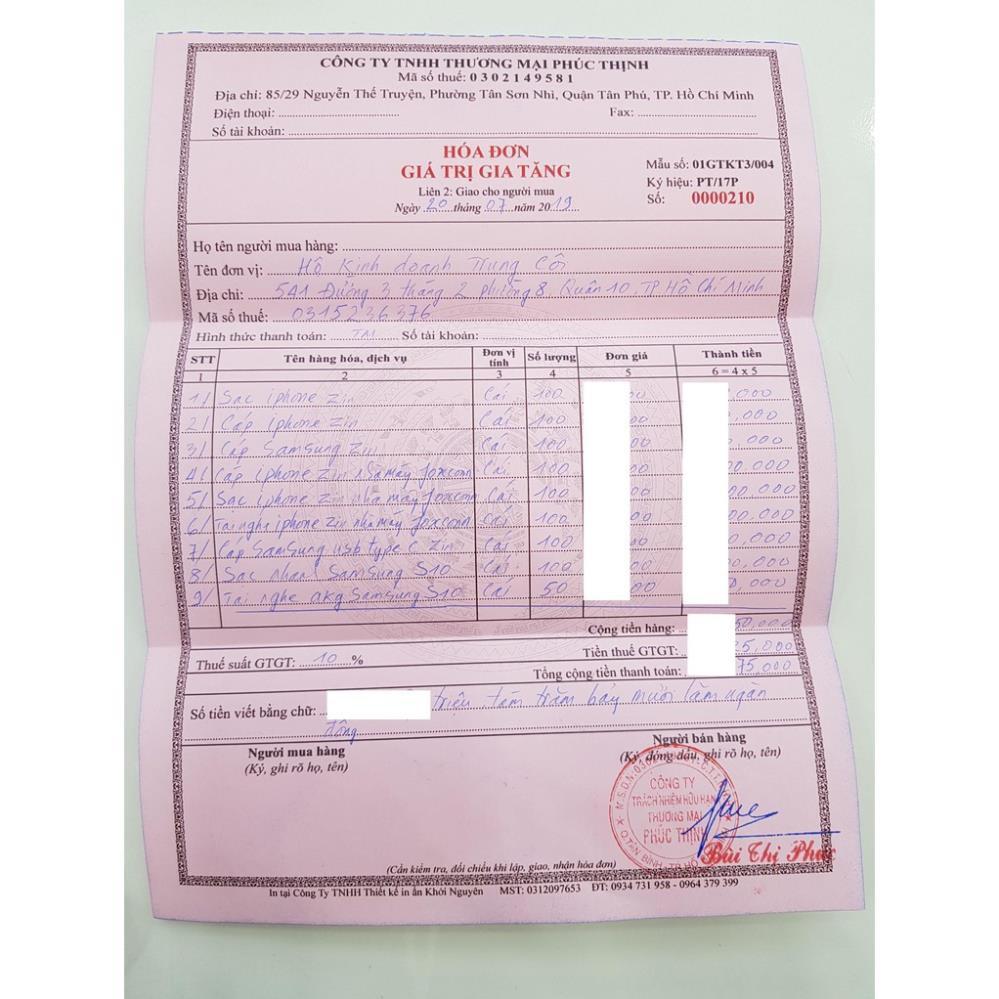 CÔNG TY TNHH THƯƠNG MẠI PHÚC THỊNH
Mã số thuế: 0302149581
Địa chỉ: 85/29 Nguyễn Thế Truyện, Phường Tân Sơn Nhì, Quận Tân Phú, TP. Hồ Chí Minh
Điện thoại: Fax:
Số tài khoản:
HÓA ĐƠN
GIÁ TRỊ GIA TĂNG
Liên 2: Giao cho người mua
Ngày 20 tháng 07 năm 2019
Mẫu số: 01GTKT3/004
Ký hiệu: PT/17P
Số: 0000210
Họ tên người mua hàng:
Tên đơn vị: Hộ Kinh doanh Trung Côi
Địa chỉ: 541 Đường 3 tháng 2 phường 8, Quận 10, TP Hồ Chí Minh
Mã số thuế: 0315236376
Hình thức thanh toán: TM Số tài khoản:
STT Tên hàng hóa, dịch vụ Đơn vị tính Số lượng Đơn giá Thành tiền
1 2 3 4 5 6 = 4 x 5
1/ Sạc iphone zin Cái 100 00 ,000
2/ Cáp iphone zin Cái 100 00 ,000
3/ Cáp SamSung Zin Cái 100 00 ,000
4/ Cáp iphone zin nhà máy foxconn Cái 100 00 00,000
5/ Sạc iphone zin nhà máy foxconn Cái 100 00 00,000
6/ Tai nghe iphone zin nhà máy foxconn Cái 100 00 00,000
7/ Cáp SamSung usb type c zin Cái 100 00 0,000
8/ Sạc nhanh SamSung S10 Cái 100 00 0,000
9/ Tai nghe akg SamSung S10 Cái 50 00 0,000
Cộng tiền hàng: 50,000
Thuế suất GTGT: 10 % Tiền thuế GTGT: 25,000
Tổng cộng tiền thanh toán: 75,000
Số tiền viết bằng chữ: triệu, tám trăm bảy mươi lăm ngàn
đồng
Người mua hàng
(Ký, ghi rõ họ, tên)
Người bán hàng
(Ký, đóng dấu, ghi rõ họ, tên)
CÔNG TY
TRÁCH NHIỆM HỮU HẠN
THƯƠNG MẠI
PHÚC THỊNH
Q.TÂN BÌNH - TP HỒ
Bùi Thị Phúc
(Cần kiểm tra, đối chiếu khi lập, giao, nhận hóa đơn)
In tại Công Ty TNHH Thiết kế in ấn Khởi Nguyên MST: 0312097653 ĐT: 0934 731 958 - 0964 379 399